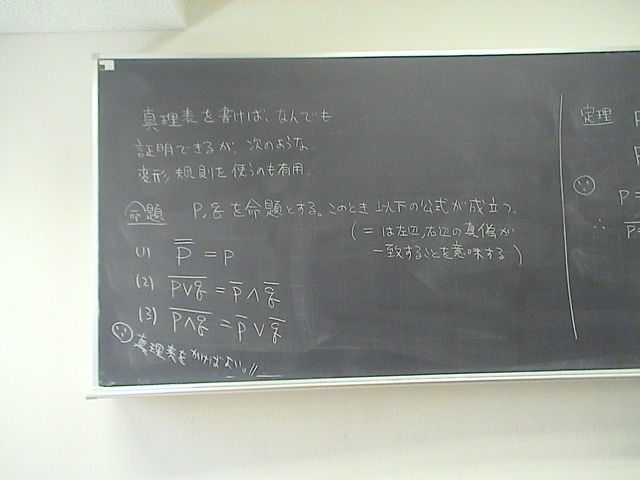 真理表を書けば、なんでも
証明できるが、次のような
変形規則を使うのも有用。
命題 P, q を命題とする。このとき 以下の公式が成立つ。
( = は左辺, 右辺の真偽が
一致することを意味する )
(1) P̿ = P
(2) \overline{P∨q} = \overline{P} ∧ \overline{q}
(3) \overline{P∧q} = \overline{P} ∨ \overline{q}
真理表をかけばよい。//
定理
P =
∴ P =